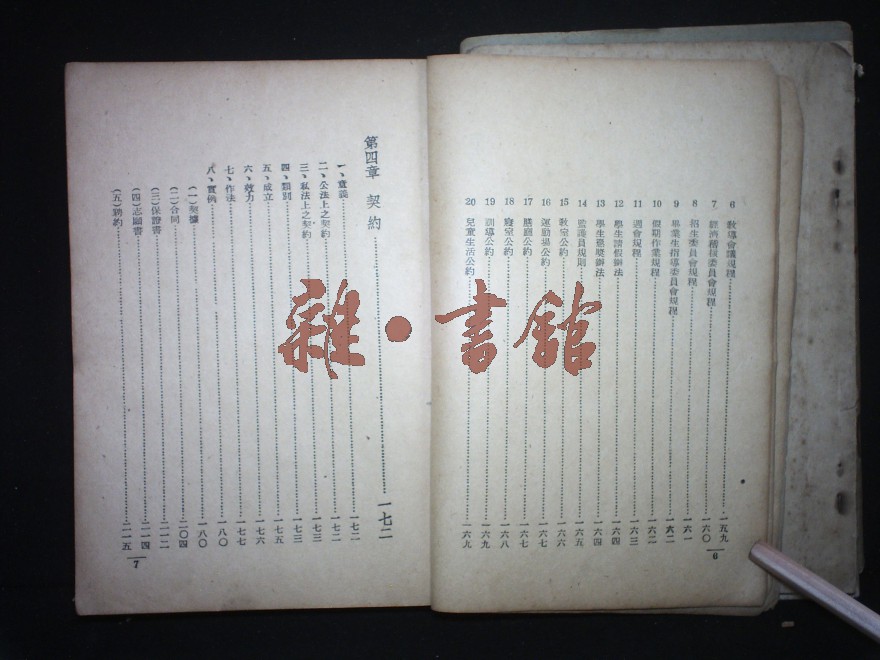 6 教導會議規程……一五九
7 經濟稽核委員會規程……一六〇
8 招生委員會規程……一六一
9 畢業生指導委員會規程……一六二
10 假期作業規程……一六二
11 週會規程……一六三
12 學生請假辦法……一六四
13 學生懲獎辦法……一六四
14 監護員規則……一六五
15 教室公約……一六六
16 運動場公約……一六七
17 膳廳公約……一六七
18 寢室公約……一六八
19 訓導公約……一六九
20 兒童生活公約……一六九
6
第四章 契約……一七二
一、意義……一七二
二、公法上之契約……一七二
三、私法上之契約……一七三
四、類別……一七三
五、成立……一七五
六、效力……一七六
七、作法……一七七
八、實例……一八〇
(一)契據……一八〇
(二)合同……二〇四
(三)保證書……二一二
(四)志願書……二一四
(五)聘約……二一五
7
雜·書館